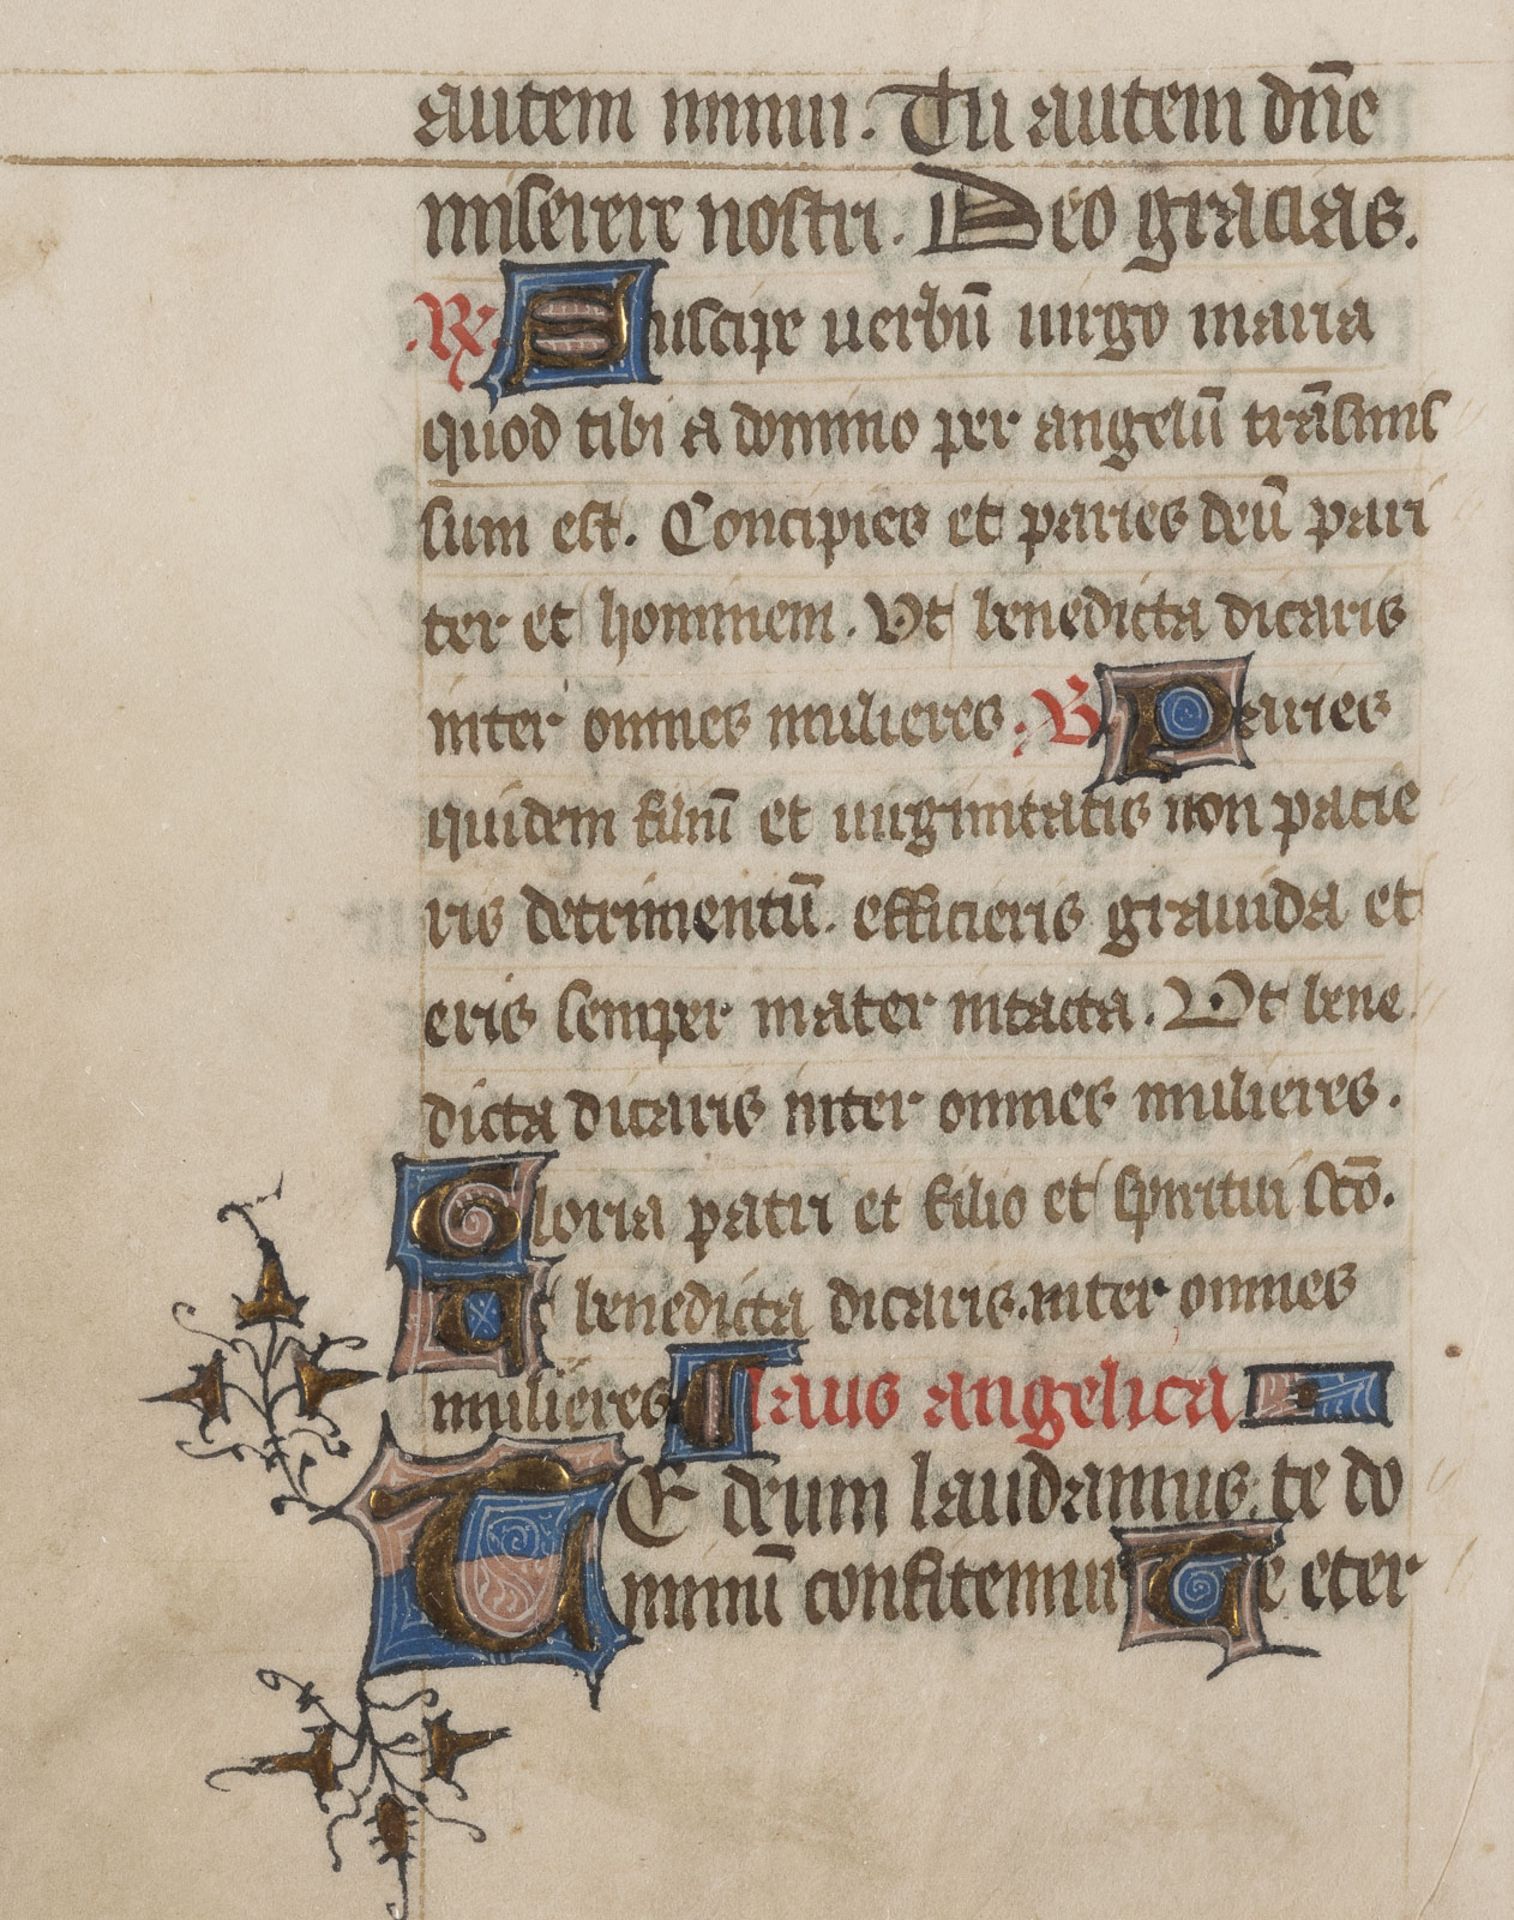 autem mundi. Tu autem dn̄e
miserere nostri. Deo gracias.
.R. Suscipe uerbū uirgo maria
quod tibi a domino per angelū trāsmis
sum est. Concipies et paries deū pari
ter et hominem. Vt benedicta dicaris
inter omnes mulieres. V Paries
quidem filiū et uirginitatis non pacie
ris detrimentū. efficieris grauida et
eris semper mater intacta. Vt bene
dicta dicaris inter omnes mulieres.
Gloria patri et filio et spiritui scō.
Vt benedicta dicaris. inter omnes
mulieres laus angelica
TE deum laudamus. te do
minū confitemur Te eter